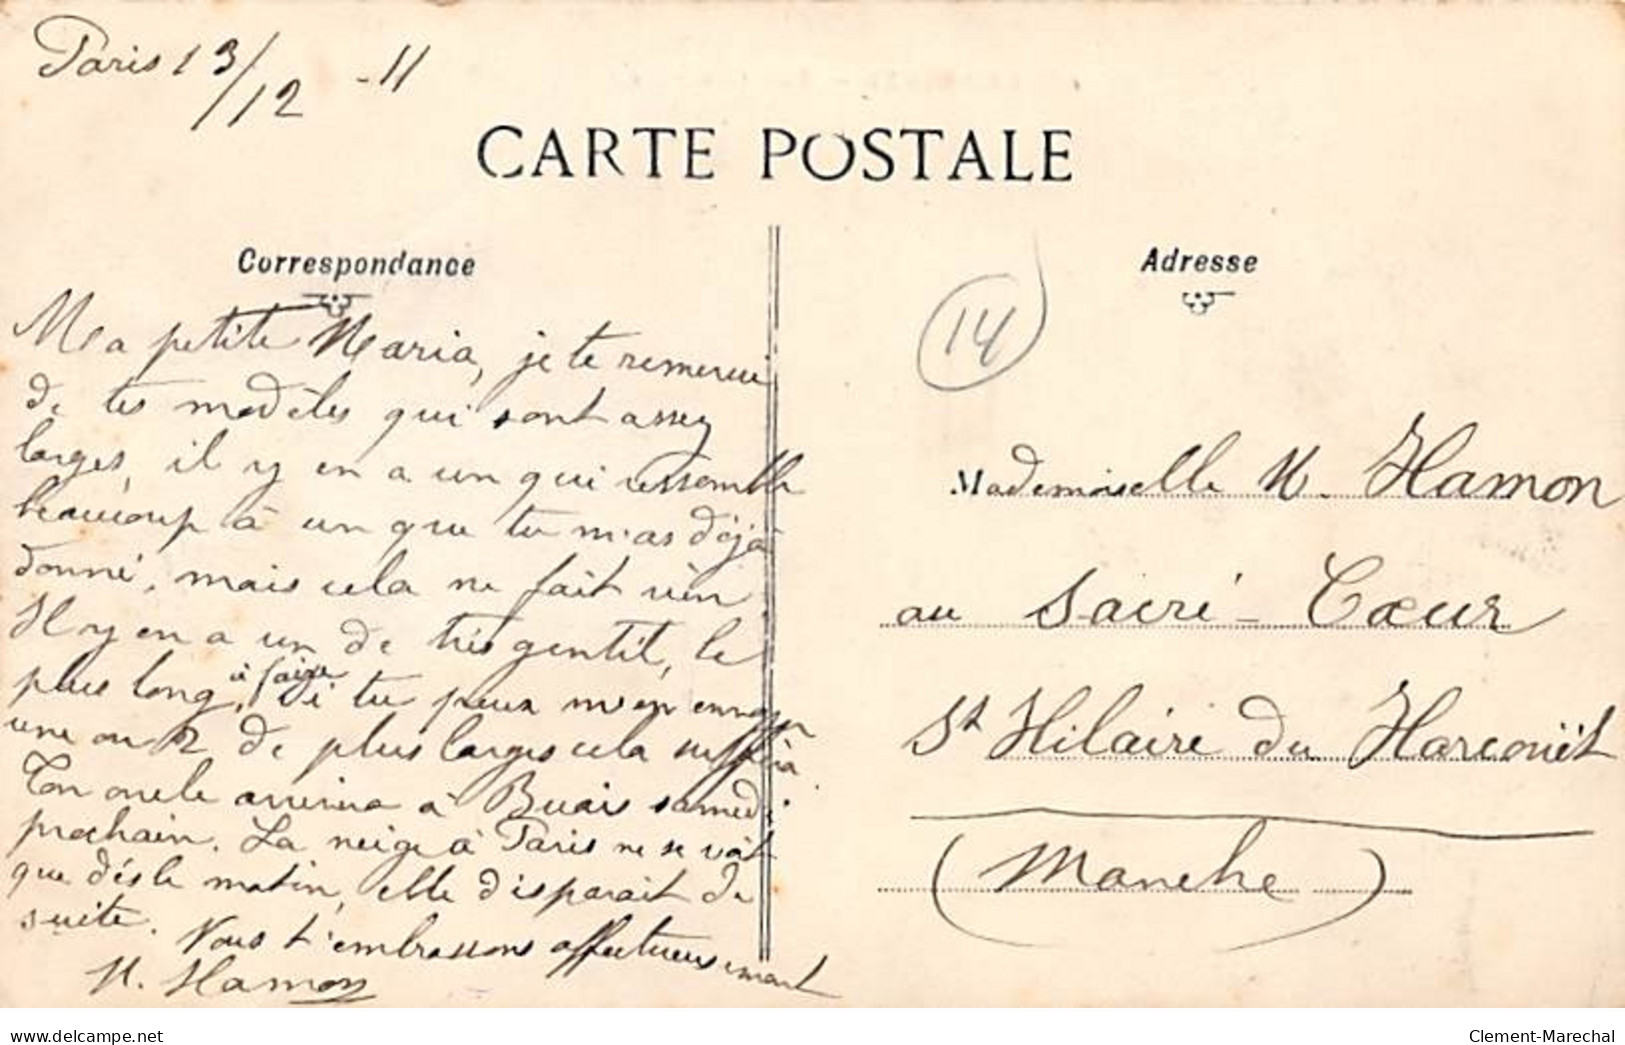 Paris 13/12 -11
CARTE POSTALE
Correspondance
Ma petite Maria, je te remercie
de tes modèles qui sont assez
larges, il y en a un qui ressemble
beaucoup à un que tu m'as déjà
donné, mais cela ne fait rien.
Il y en a un de très gentil, le
plus long, à faire. Si tu peux m'en envoyer
une ou 2 de plus larges cela suffira.
Ton oncle arrivera à Buais samedi
prochain. La neige à Paris ne se voit
que dès le matin, elle disparait de
suite. Nous t'embrassons affectueusement
M. Hamon
14
Adresse
Mademoiselle M. Hamon
au Sacré-Cœur
St Hilaire du Harcouët
(Manche)
www.delcampe.net
Clement-Marechal